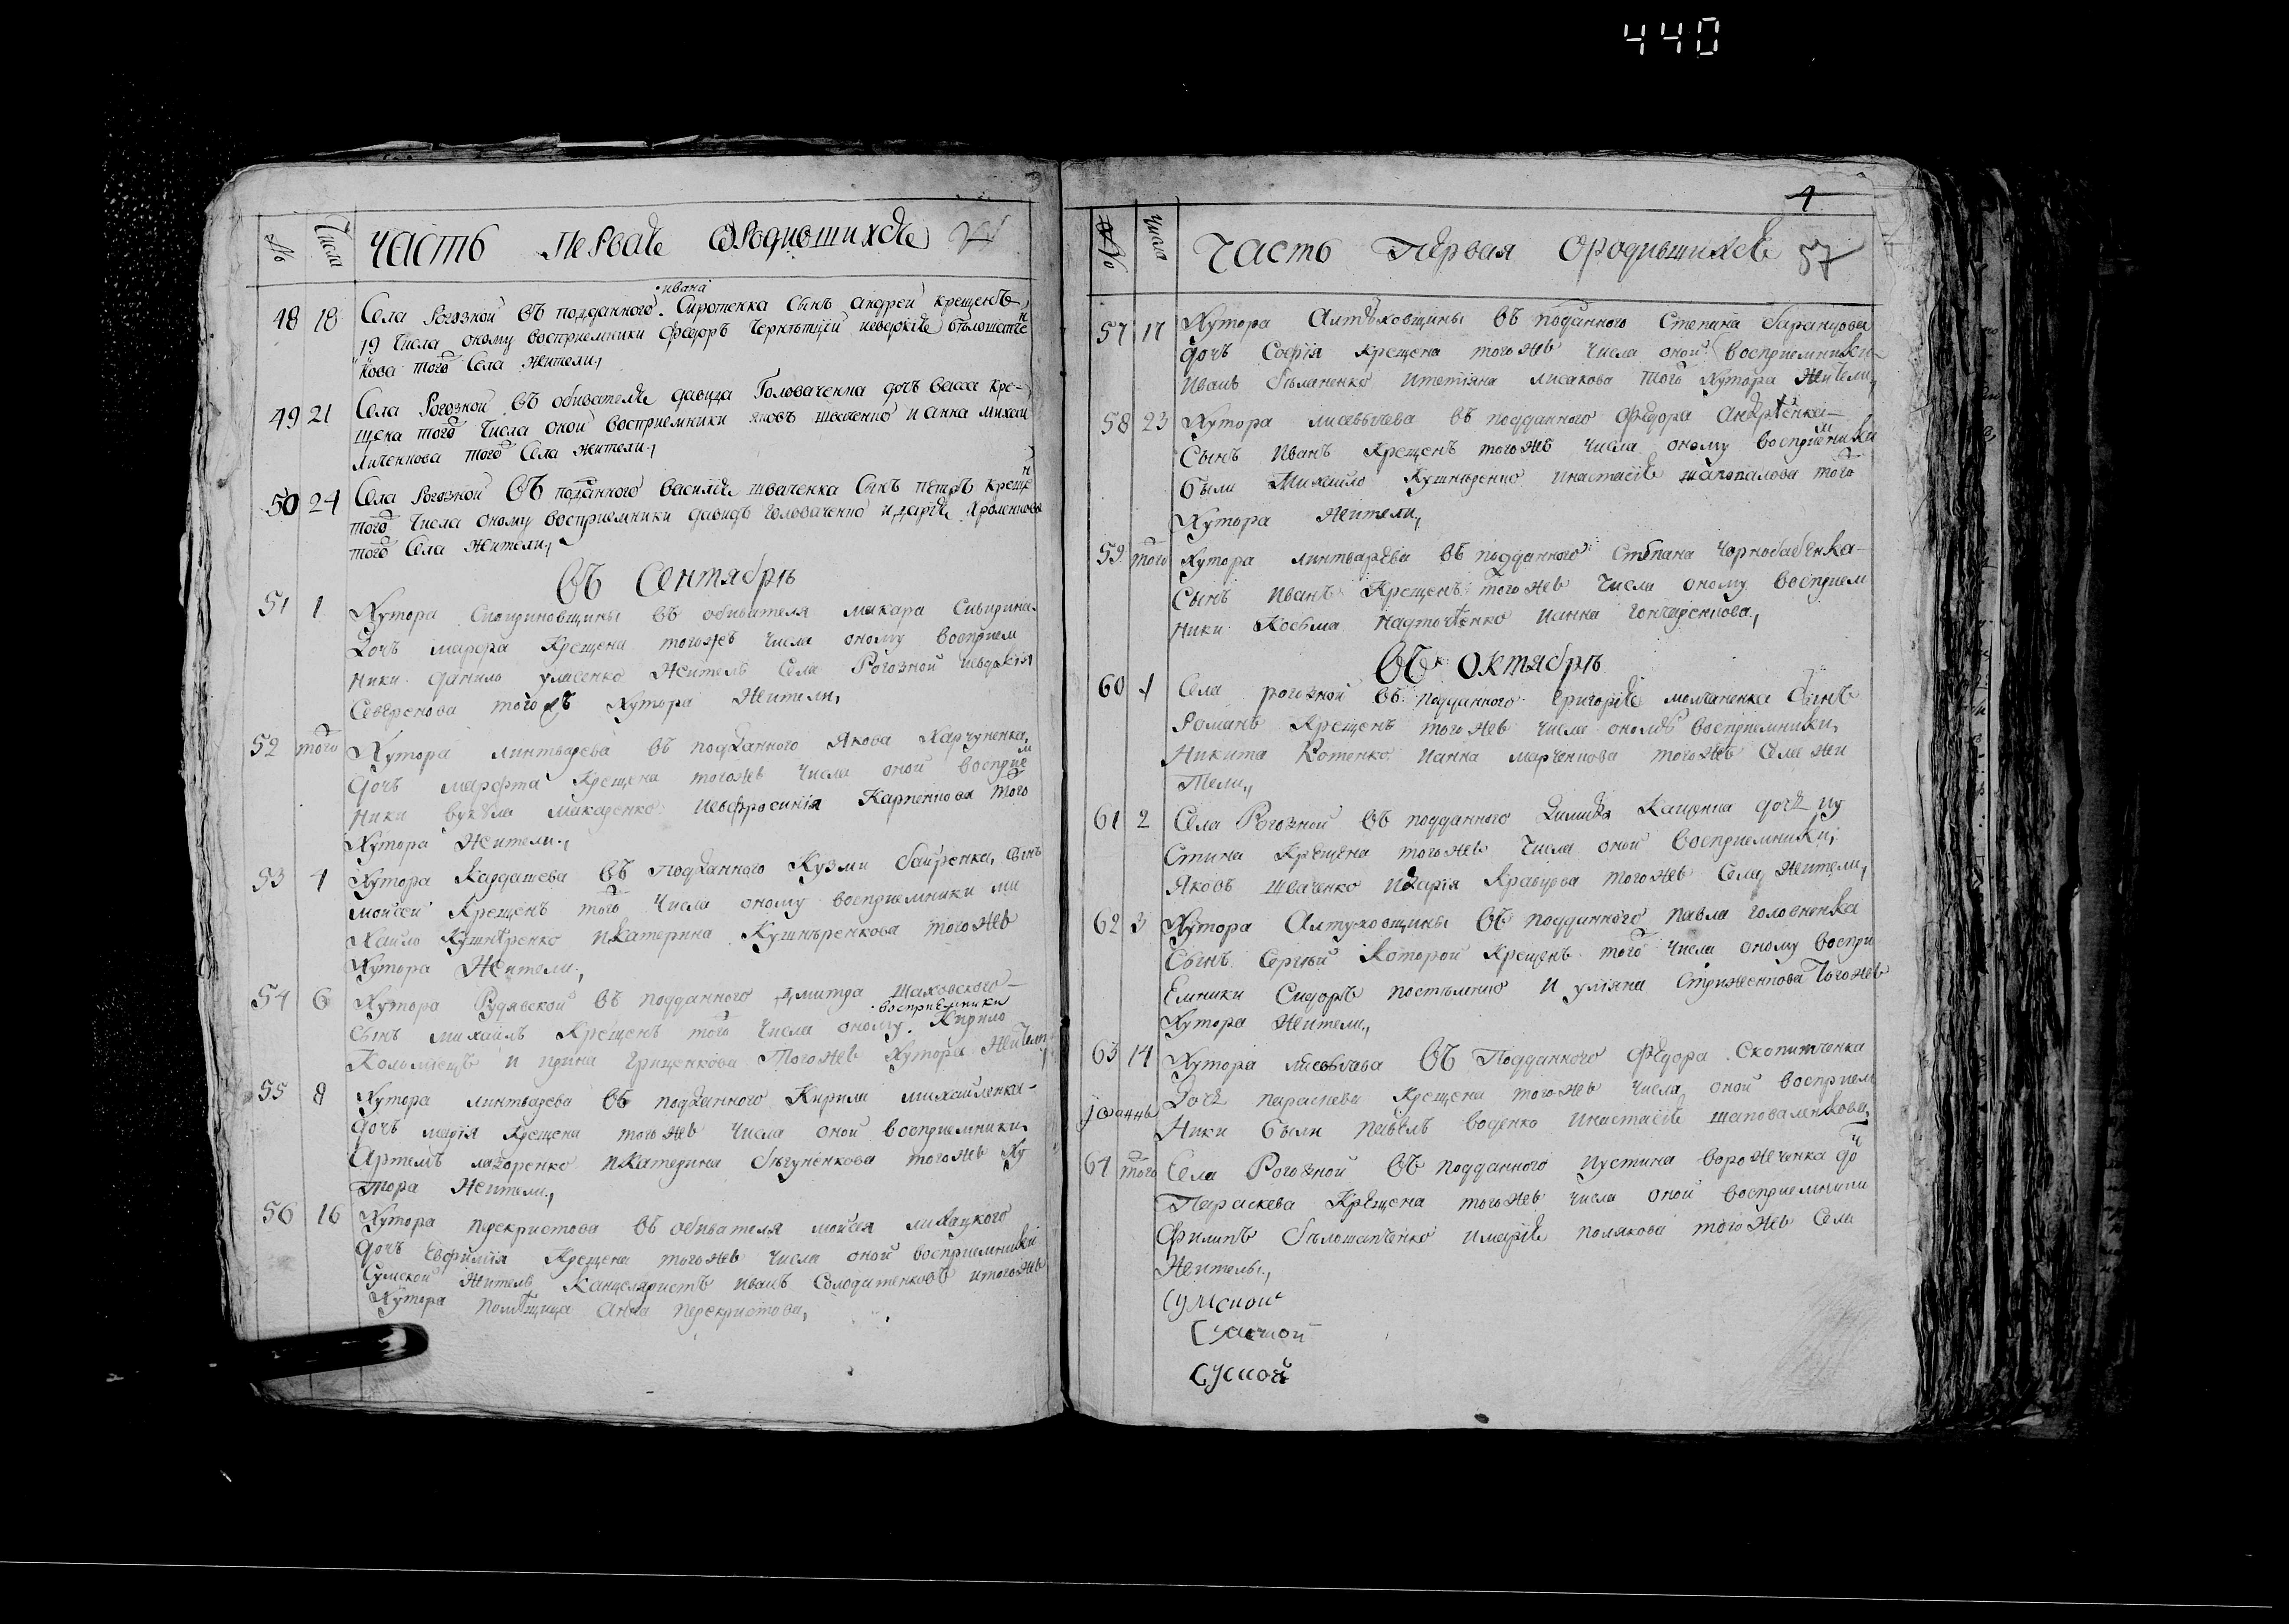 440
№ Числа Часть первая ородившихся
48 18 Села Рогозной въ подданного Ивана Сиротенка сынъ Андрей крещенъ
19 числа оному восприемники Федоръ
кова того села жители,
49 21 Села Рогозной въ обивателя Давида Головаченка дочъ Васса кре-
щена того числа оной восприемники Яковъ Шваченко и Анна Михай
личенкова того села жители,
50 24 Села Рогозной въ подданного Василия Шваченка сынъ Петръ крещен
того числа оному восприемники Давидъ Головаченко и Дария Кроленкова
того села жители,
Въ Сентябрѣ
51 1 Хутора въ обивателя Макара
дочъ Марфа крещена тогожъ числа оному восприем
ники Данило Уласенко житель села Рогозной Иевдокия
Северенова тогожъ хутора жители,
52 того Хутора Линтварева въ подданного Якова Харчученка
дочъ Марфта крещена тогожъ числа оной восприем
ники Вукула Макаренко Иевфросиния Карпенкова того
хутора жители,
53 4 Хутора Кардашева въ подданного Кузми сынъ
Мойсей крещенъ того числа оному восприемники Ми
хайло Кушнѣренко и Катерина Кушнѣренкова тогожъ
хутора жители,
54 6 Хутора въ подданного Дмитра Шаховского
сынъ Михаилъ крещенъ того числа оному восприемники Кирило
Коломиецъ и Ирина Грищенкова тогожъ хутора жители
55 8 Хутора Линтварева въ подданного Кирила Михайленка
дочъ Мария крещена тогожъ числа оной восприемники
Артемъ Лазоренко и Катерина Бѣгуненкова тогожъ ху
тора жители,
56 16 Хутора Перекристова въ обивателя Мойсея
дочъ Евфимия крещена тогожъ числа оной восприемники
Сумской житель канцеляристъ Иванъ Солодитенковъ итогожъ
хутора помѣщица Анна Перекристова,
4
№ Числа Часть Первая ородившихся 57
57 17 Хутора Алтуховщины въ поданного Степана Баранцова
дочъ София крещена тогожъ числа оной восприемники
Иванъ Бѣланенко Ителияна Лисакова того хутора жители,
58 23 Хутора Лисевичева въ подданного Федора
сынъ Иванъ крещенъ тогожъ числа оному восприемники
были Михайло Кушнѣренко Инастасия Шаповалова того
хутора жители,
59 того Хутора Линтварева въ подданного Степана Чорнобабенка
сынъ Иванъ крещенъ тогожъ числа оному восприем
ники Косьма Надточѣенко Ианна Гончаренкова,
Въ Октябрѣ
60 1 Села Рогозной въ подданного Григория Молчаненка сынъ
Романъ крещенъ тогожъ числа ономъ восприемники
Никита Котенко Ианна Марченкова тогожъ села жи
тели,
61 2 Села Рогозной въ подданного Кацунка дочъ Иу
стина крещена тогожъ числа оной восприемники,
Яковъ Шваченко Идария Кравцова тогожъ села жители,
62 3 Хутора Алтуховщины въ подданного Павла Головненка
сынъ Сергий которой крещенъ того числа оному воспри
емники Сидоръ Постѣленко и Улияна Стриженкова тогожъ
хутора жители,
63 14 Хутора Лисевичева въ подданного Федора Скопитченка
дочъ Параскева крещена тогожъ числа оной восприем
Iоаннъ ники были Павелъ Воденко Инастасия Шаповаленкова,
64 того Села Рогозной въ подданного Иустина Вороженка доч
Параскева крещена тогожъ числа оной восприемники
Филипъ Бѣлошапченко Имария Полякова тогожъ села
жители,
Сумской
Сумской
Суской